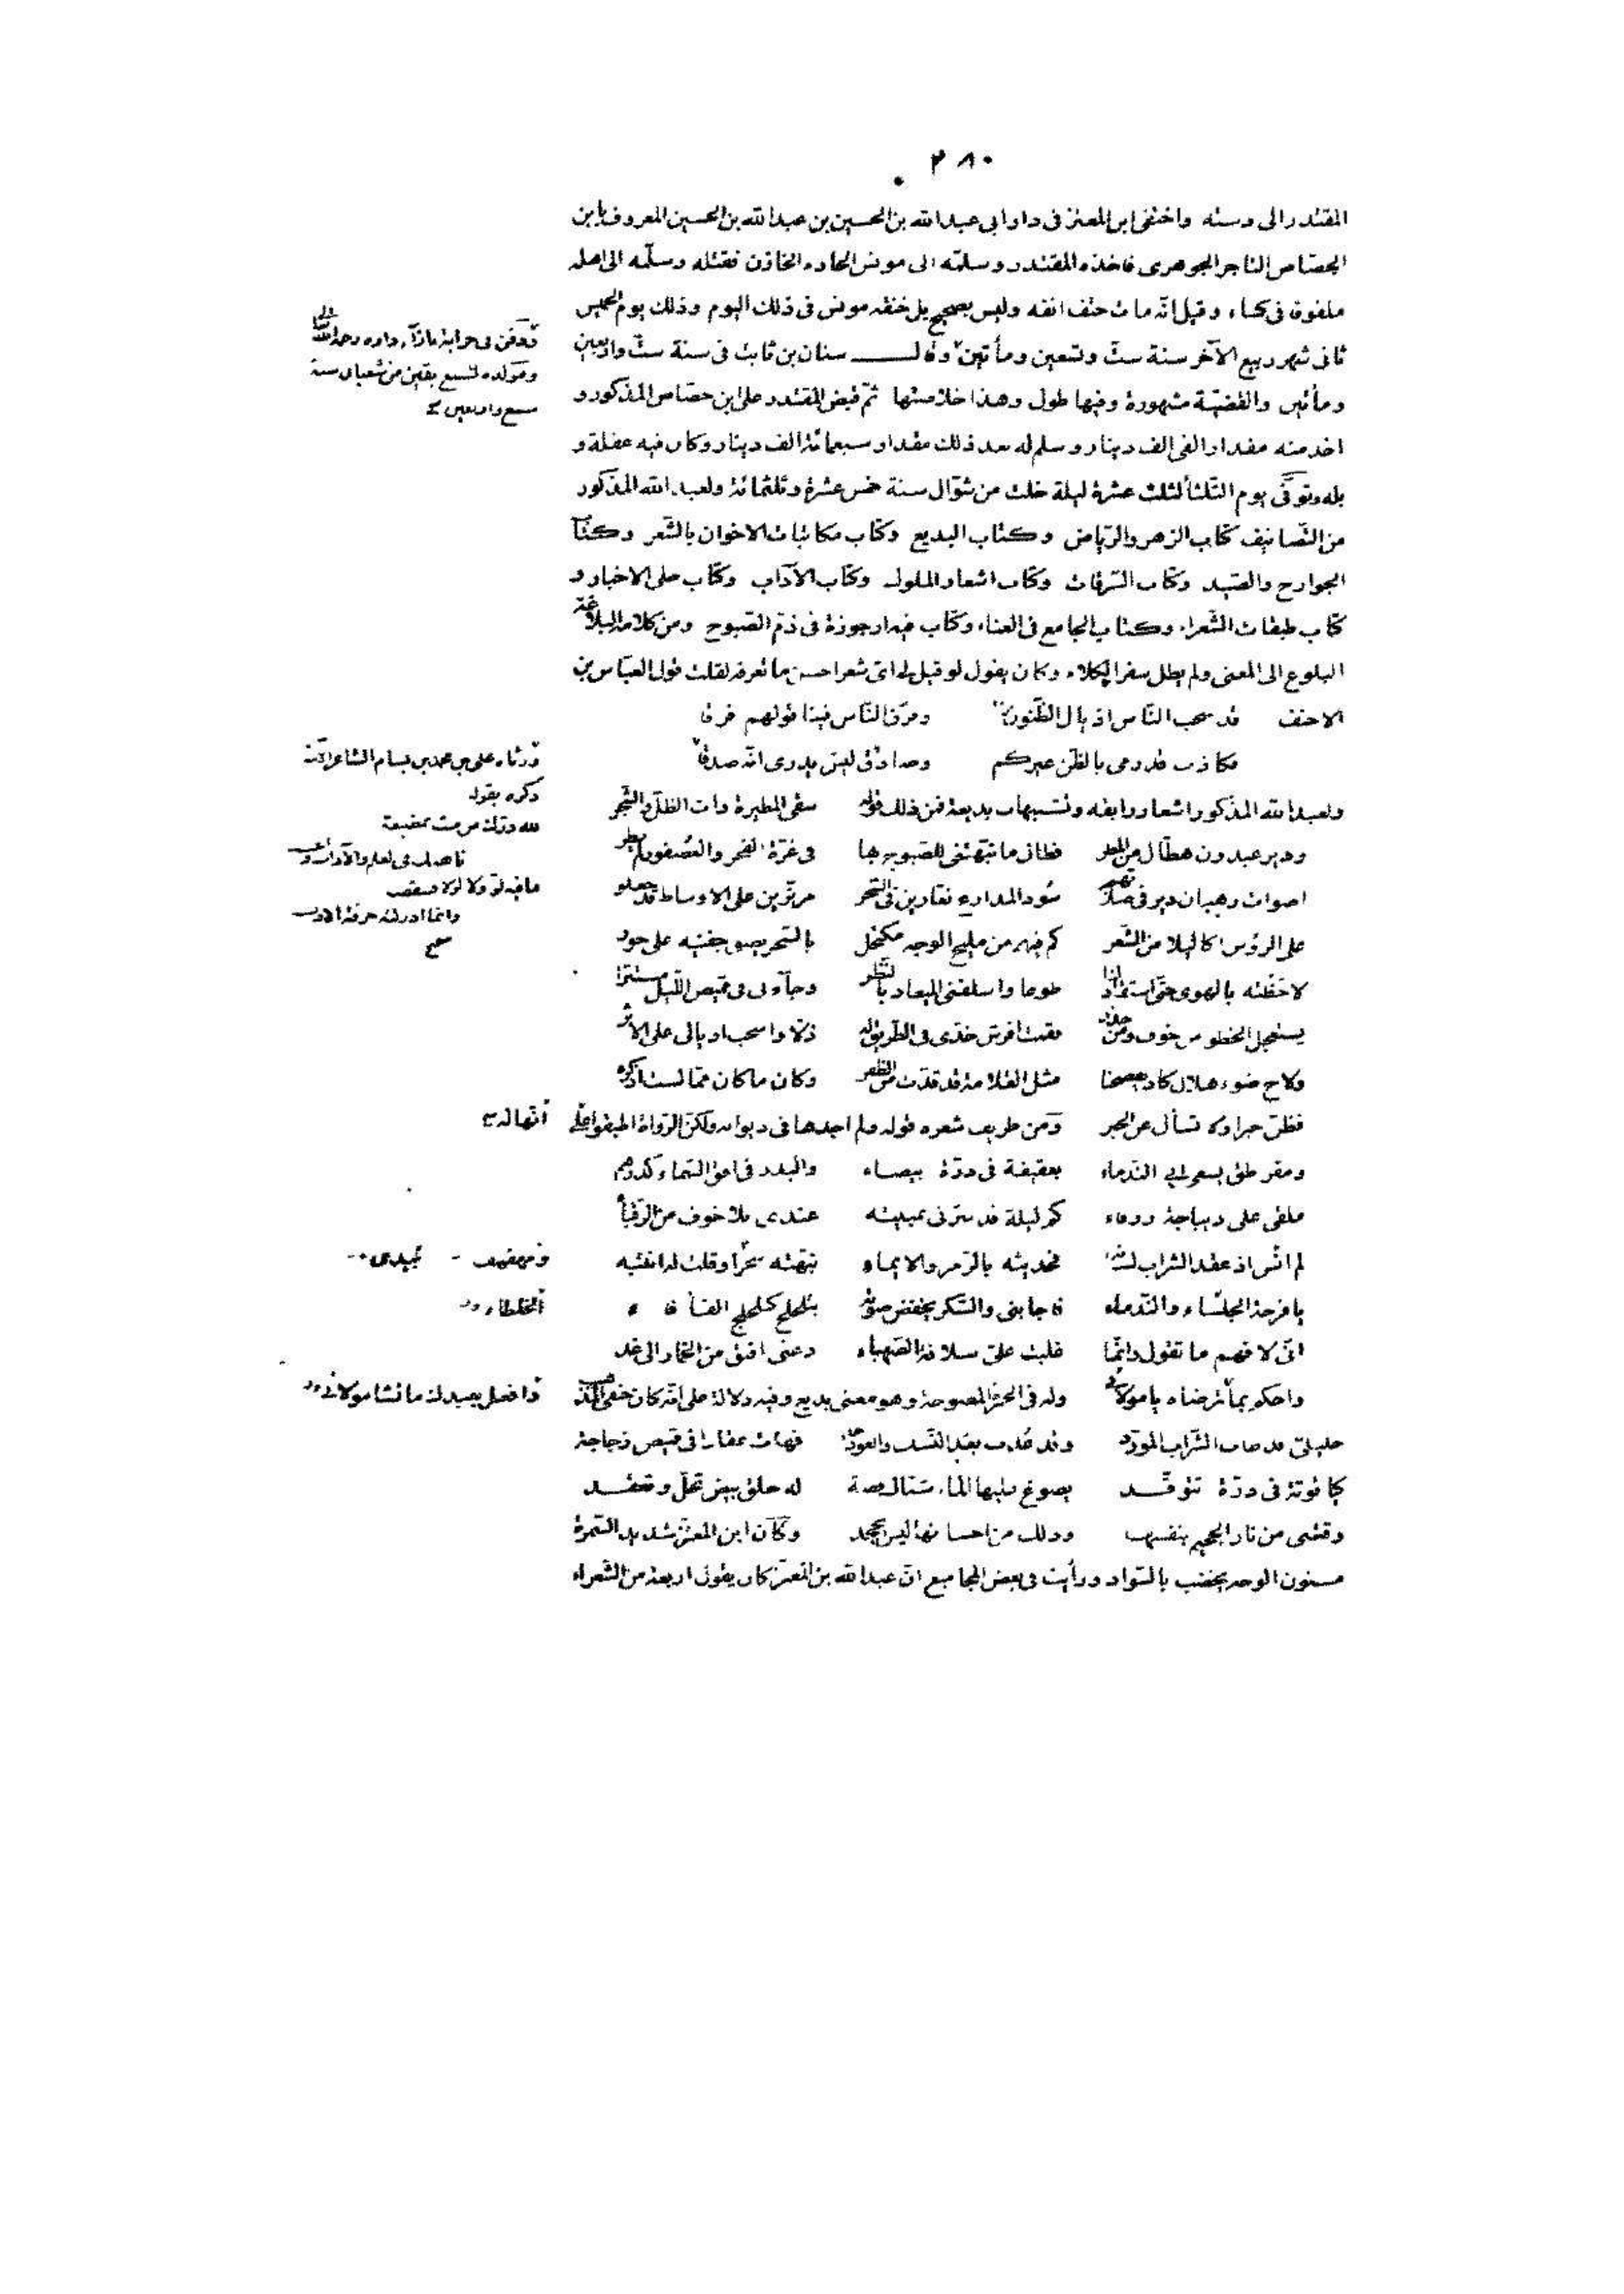 ٢٨٠
المقتدر الى دسته واختفى ابن المعتز فى دار ابى عبدالله بن الحسين بن عبدالله بن الحسين المعروف بابن
الجصّاص التاجر الجوهرى فاخذه المقتدر وسلّمه الى مونس الخادم الخازن فقتله وسلّمه الى اهله
ملفوفا فى كساء وقيل انّه مات حتف انفه وليس بصحيح بل خنقه مونس فى ذلك اليوم وذلك يوم الخميس
ثانى شهر ربيع الآخر سنة ستّ وتسعين ومأتين وقال سنان بن ثابت فى سنة ستّ واربعين
ومأتين والقضيّة مشهورة وفيها طول وهذا خلاصتها ثمّ قبض المقتدر على ابن جصّاص المذكور و
اخذ منه مقدار الفى الف دينار وسلم له بعد ذلك مقدار سبعمائة الف دينار وكان فيه غفلة و
بله وتوفّى يوم الثلثا لثلث عشرة ليلة خلت من شوّال سنة خمس عشرة وثلثمائة ولعبد الله المذكور
من التّصانيف كتاب الزهر والرّياض وكتاب البديع وكتاب مكاتبات الاخوان بالشّعر وكتاب
الجوارح والصّيد وكتاب السّرقات وكتاب اشعار الملوك وكتاب الآداب وكتاب حلى الاخبار و
كتاب طبقات الشّعراء وكتاب الجامع فى الغناء وكتاب فيه ارجوزة فى ذمّ الصّبوح ومن كلامه البلاغة
البلوغ الى المعنى ولم يطل سفر الكلام وكان يقول لو قيل لى اىّ شعر احسن ما تعرفه لقلت قول العبّاس بن
الاحنف قد سحب النّاس اذيال الظّنون بنا وفرّق النّاس فينا قولهم فرقا
فكاذب قد رمى بالظّن غيركم وصادق ليس يدرى انّه صدقا
ولعبدالله المذكور اشعار رايقه وتشبيهات بديعة فمن ذلك قوله سقى المطيرة ذات الظلّ والشّجر
ودير عبدون هطّال من المطر فطال ما نبّهتنى للصّبوح بها فى غرّة الفجر والعصفور لم يطر
اصوات رهبان دير فى صلاتهم سُود المدارع نعّارين فى السّحر مزنّرين على الاوساط قد جعلوا
على الرؤس اكاليلا من الشّعر كم فيهم من مليح الوجه مكتحل بالسّحر يطبق جفنيه على حور
لاحظته بالهوى حتّى استقاد له طوعا واسلفنى الميعاد بالنّظر وجآءنى فى قميص اللّيل مستترا
يستعجل الخطو من خوف ومن حذر فقمت افرش خدّى فى الطّريق له ذلّا واسحب اذيالى على الاثر
ولاح ضوء هلال كاد يفضحنا مثل القلامة قد قدّت من الظفر وكان ما كان ممّا لست اذكره
فظنّ خيرا ولا تسأل عن الخبر ومن ظريف شعره قوله ولم اجدها فى ديوانه ولكنّ الرّواة اتّفقوا على
ومقرطق يسعى الى الندماء بعقيقة فى درّة بيضاء والبدر فى افق السّماء كدرهم
ملقى على ديباجة زرقاء كم ليلة قد سرّنى بمبيته عندى بلا خوف من الرّقبآء
لم انس اذ عقد الشراب لسانه فحديثه بالرّمز والايماء نبّهته سَحَرا وقلت له انتبه
يا فرحة الجلساء والنّدماء فاجابنى والسّكر يخفض صوته بتلجلج كتلجلج الفأفاء
انّى لافهم ما تقول وانّما غلبت علىّ سلافة الصّهباء دعنى افق من الخمار الى غد
واحكم بما ترضاه يا مولائى وله فى الخمر المطبوخة وهو معنى بديع وفيه دلالة على انّه كان حنفى المذهب
خليلىّ قد طاب الشّراب المورّد وقد عدت بعد النّسك والعود احمد فهات عقارا فى قميص زجاجة
كياقوتة فى درّة تتوقّد يصوغ عليها الماء شبّاك فضة له حلق بيض تحلّ وتعقد
وقتنى من نار الجحيم بنفسها وذلك من احسانها ليس يجحد وكان ابن المعتزّ شديد السّمرة
مسنون الوجه يخضب بالسّواد ورأيت فى بعض المجاميع انّ عبدالله بن المعتزّ كان يقول اربعة من الشّعراء
ودفن فى خرابة بازآء داره رحمه الله تعالى
ومولده لسبع بقين من شعبان سنة
سبع واربعين
ورثاه على بن محمد بن بسام الشاعر الآتى
ذكره بقوله
لله درّك من ميت بمضيعة
ناهيك فى العلم والآداب والحسب
ما فيه لوّ ولا لولا فتنقصه
وانّما ادركته حرفة الادب
صح
انّها له
ومهفهف
الخلطاء
وافعل بعبدك ما تشا مولائى